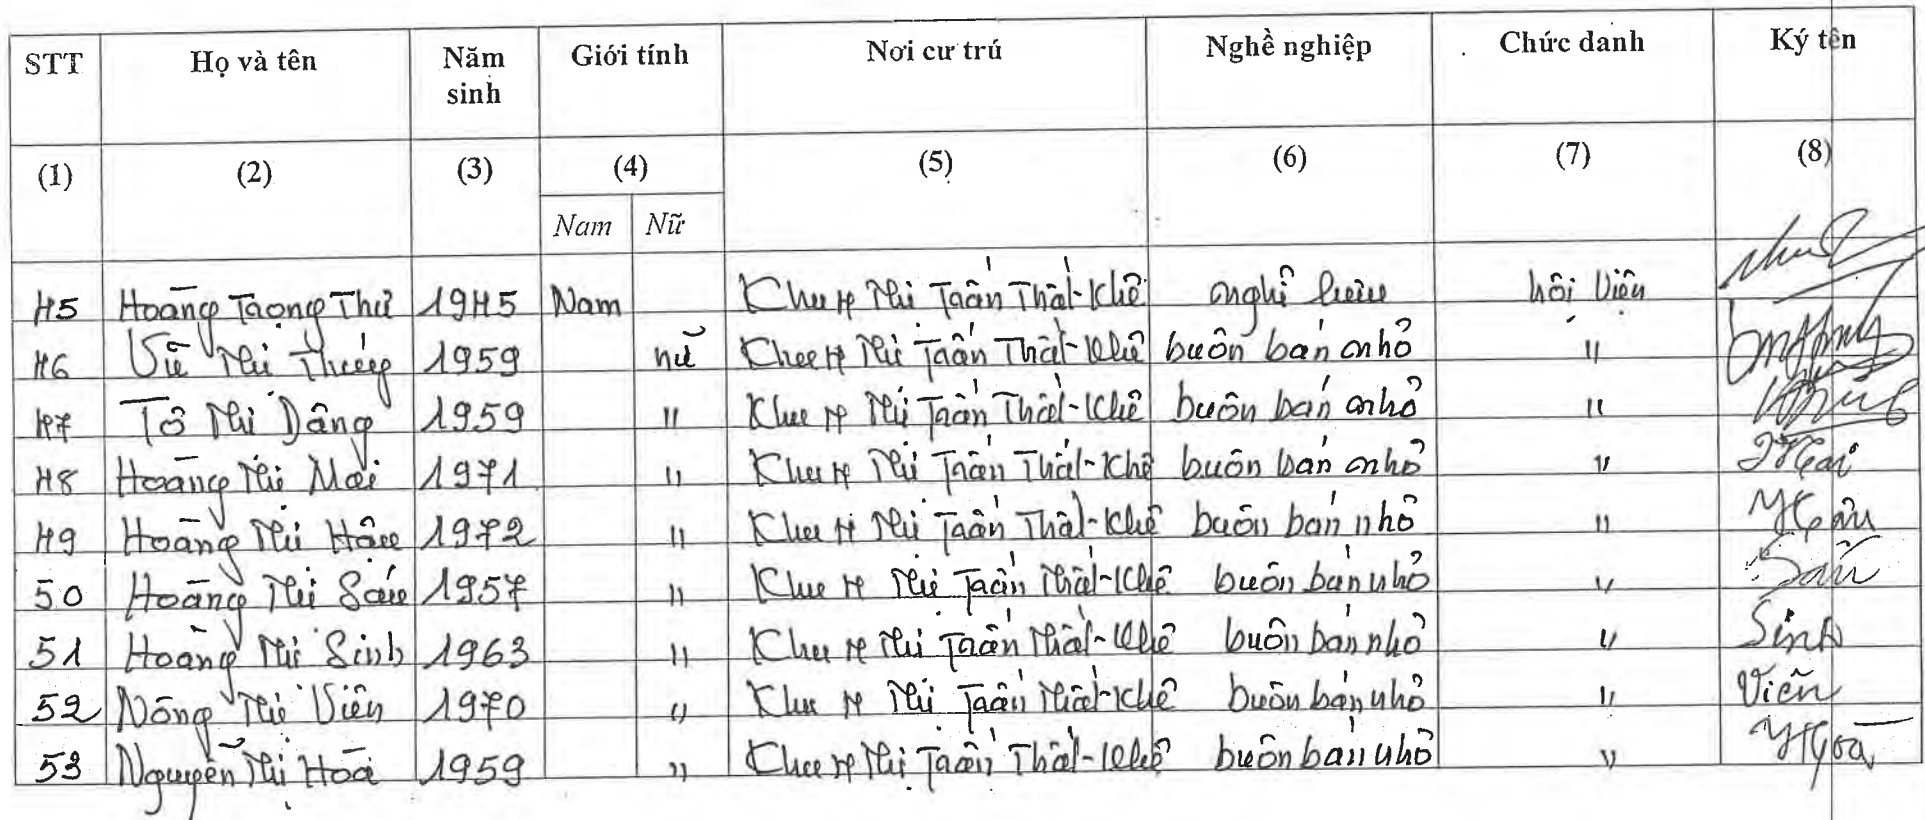 STT Họ và tên Năm sinh Giới tính Nơi cư trú Nghề nghiệp Chức danh Ký tên
(1) (2) (3) (4) (5) (6) (7) (8)
Nam Nữ
45 Hoàng Trọng Thư 1945 Nam Khu 4 Thị Trấn Thất-Khê nghỉ hưu hội viên
46 Vũ Thị 1959 nữ Khu 4 Thị Trấn Thất-Khê buôn bán nhỏ "
47 Tô Thị Dâng 1959 " Khu 4 Thị Trấn Thất-Khê buôn bán nhỏ "
48 Hoàng Thị Mai 1971 " Khu 4 Thị Trấn Thất-Khê buôn bán nhỏ "
49 Hoàng Thị Hâu 1972 " Khu 4 Thị Trấn Thất-Khê buôn bán nhỏ "
50 Hoàng Thị Sáu 1957 " Khu 4 Thị Trấn Thất-Khê buôn bán nhỏ " Sáu
51 Hoàng Thị Sinh 1963 " Khu 4 Thị Trấn Thất-Khê buôn bán nhỏ " Sinh
52 Nông Thị Viên 1970 " Khu 4 Thị Trấn Thất-Khê buôn bán nhỏ " Viên
53 Nguyễn Thị Hoà 1959 " Khu 4 Thị Trấn Thất-Khê buôn bán nhỏ "